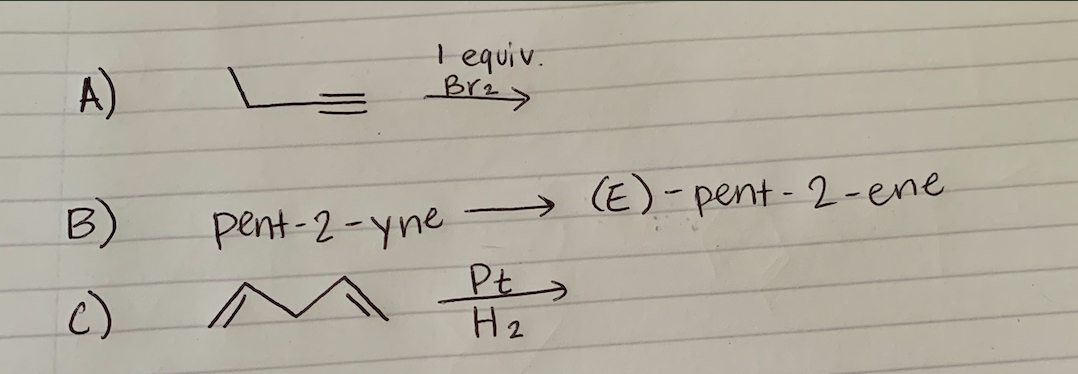 A) 1 equiv. Br2
B) pent-2-yne → (E)-pent-2-ene
C) Pt H2